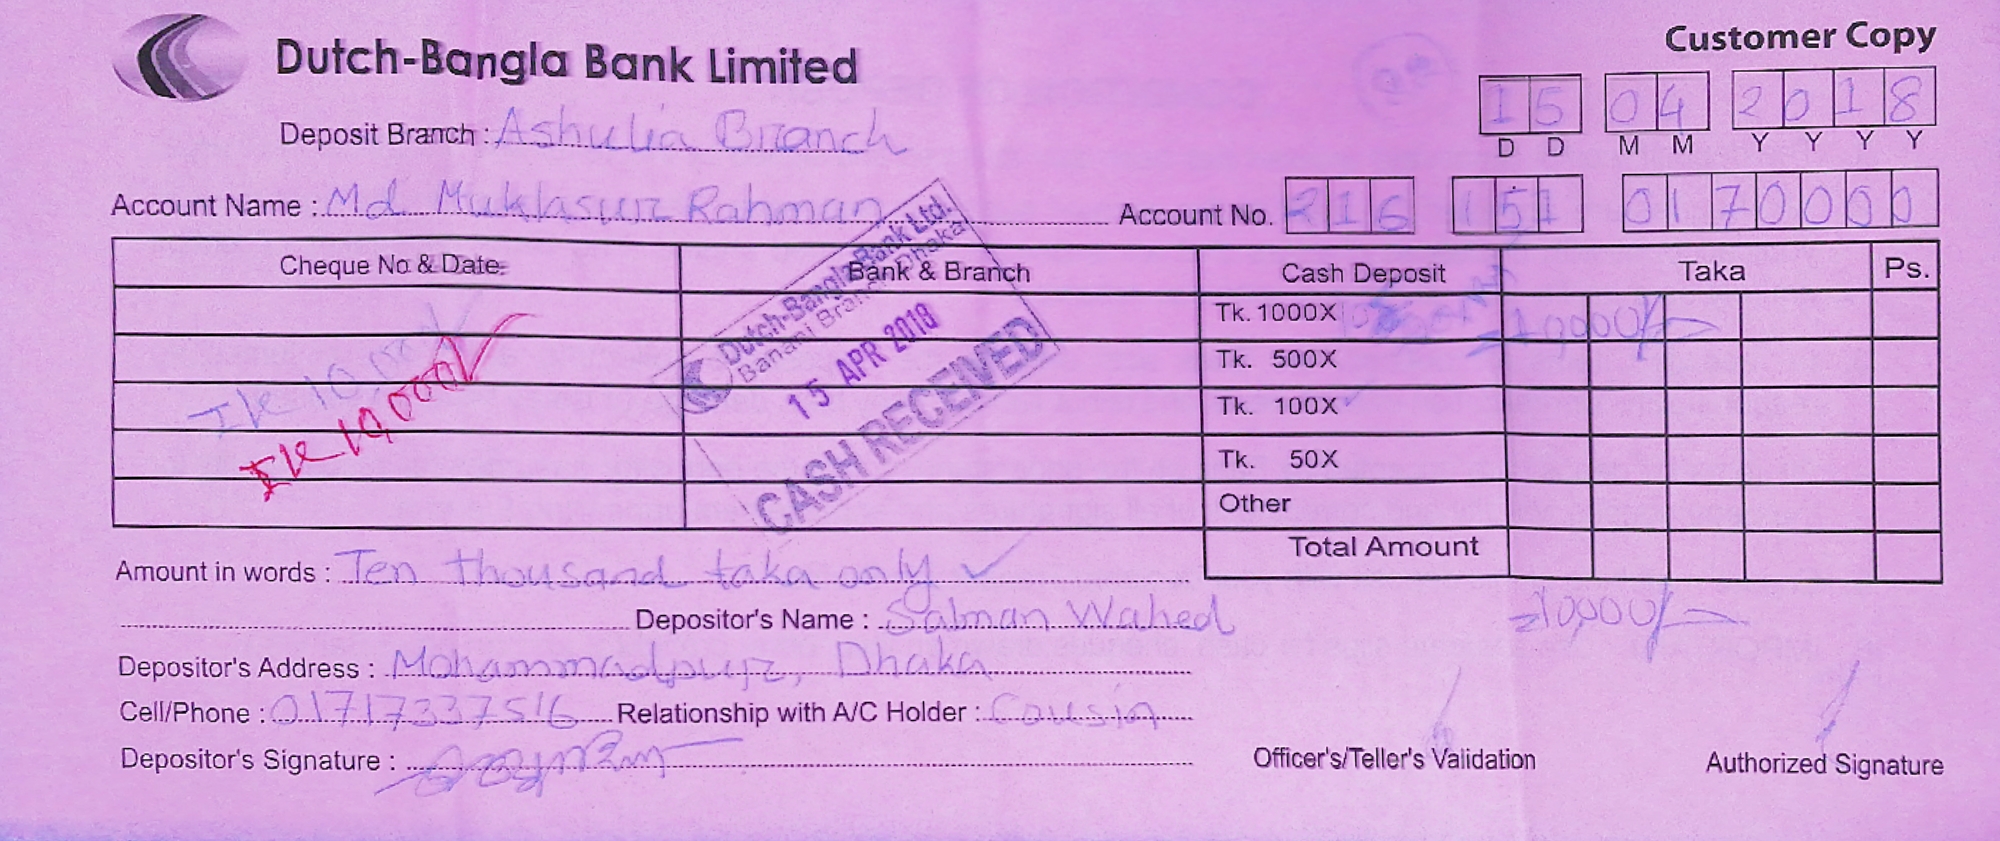 Customer Copy
Dutch-Bangla Bank Limited
15 04 2018
D D M M Y Y Y Y
Deposit Branch : Ashulia Branch
Account Name : Md Muklasur Rahman Account No. 216 151 0170000
Cheque No & Date Bank & Branch Cash Deposit Taka Ps.
Tk. 1000X 10,000/-
Tk. 500X
Tk. 100X
Tk. 50X
Other
Total Amount
Tk 10,000
Tk 10,000/
Dutch-Bangla Bank Ltd.
Banani Branch Dhaka
15 APR 2018
CASH RECEIVED
Amount in words : Ten thousand taka only
=10,000/-
Depositor's Name : Salman Wahed
Depositor's Address : Mohammadpur, Dhaka
Cell/Phone : 01717337516 Relationship with A/C Holder : Cousin
Depositor's Signature :
Officer's/Teller's Validation Authorized Signature